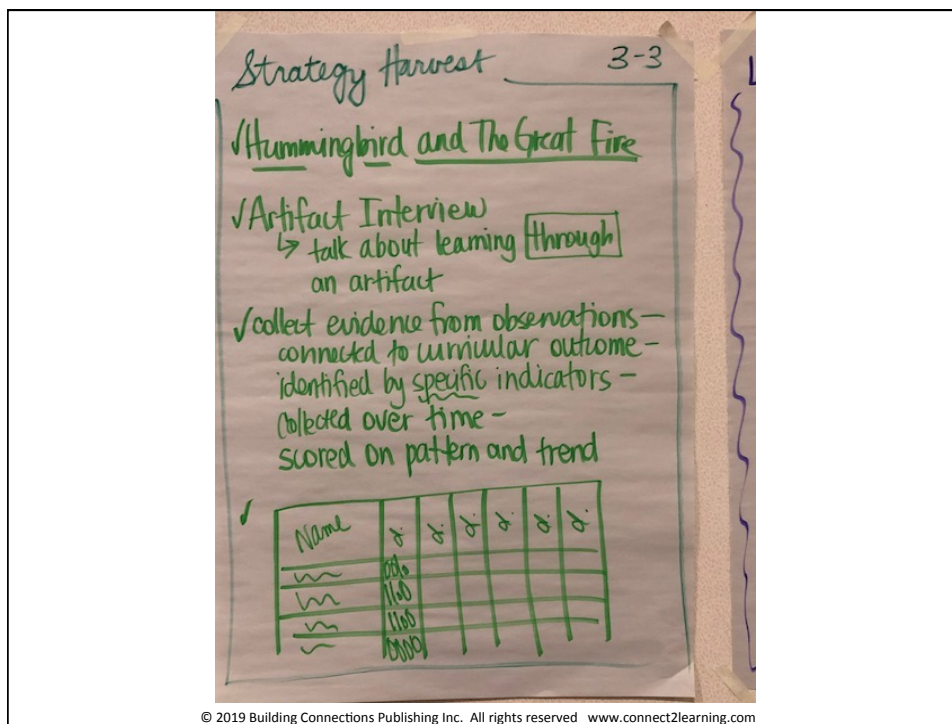 Strategy Harvest 3-3
✓Hummingbird and The Great Fire
✓Artifact Interview
↳ talk about learning through
an artifact
✓collect evidence from observations—
connected to curricular outcome—
identified by specific indicators—
collected over time—
scored on pattern and trend
✓
Name
© 2019 Building Connections Publishing Inc. All rights reserved www.connect2learning.com